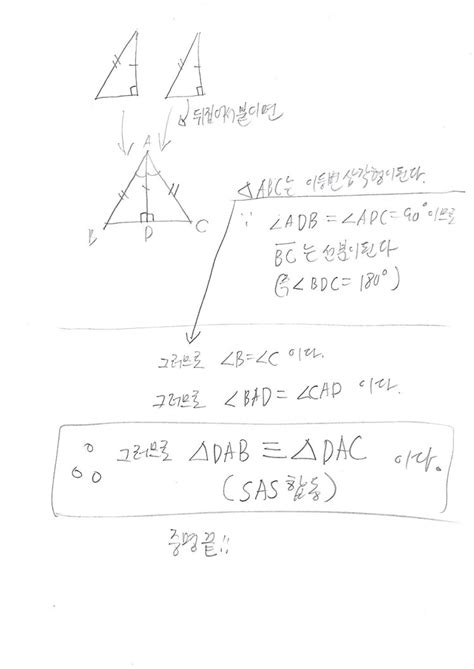 뒤집어서 붙이면
A
B
D
C
△ABC는 이등변삼각형이된다.
∵ ∠ADB = ∠ADC = 90° 이므로
BC는 선분이된다
(즉 ∠BDC = 180°)
그러므로 ∠B=∠C 이다.
그러므로 ∠BAD = ∠CAD 이다.
∴ 그러므로 △DAB ≡ △DAC 이다.
(SAS 합동)
증명끝!!